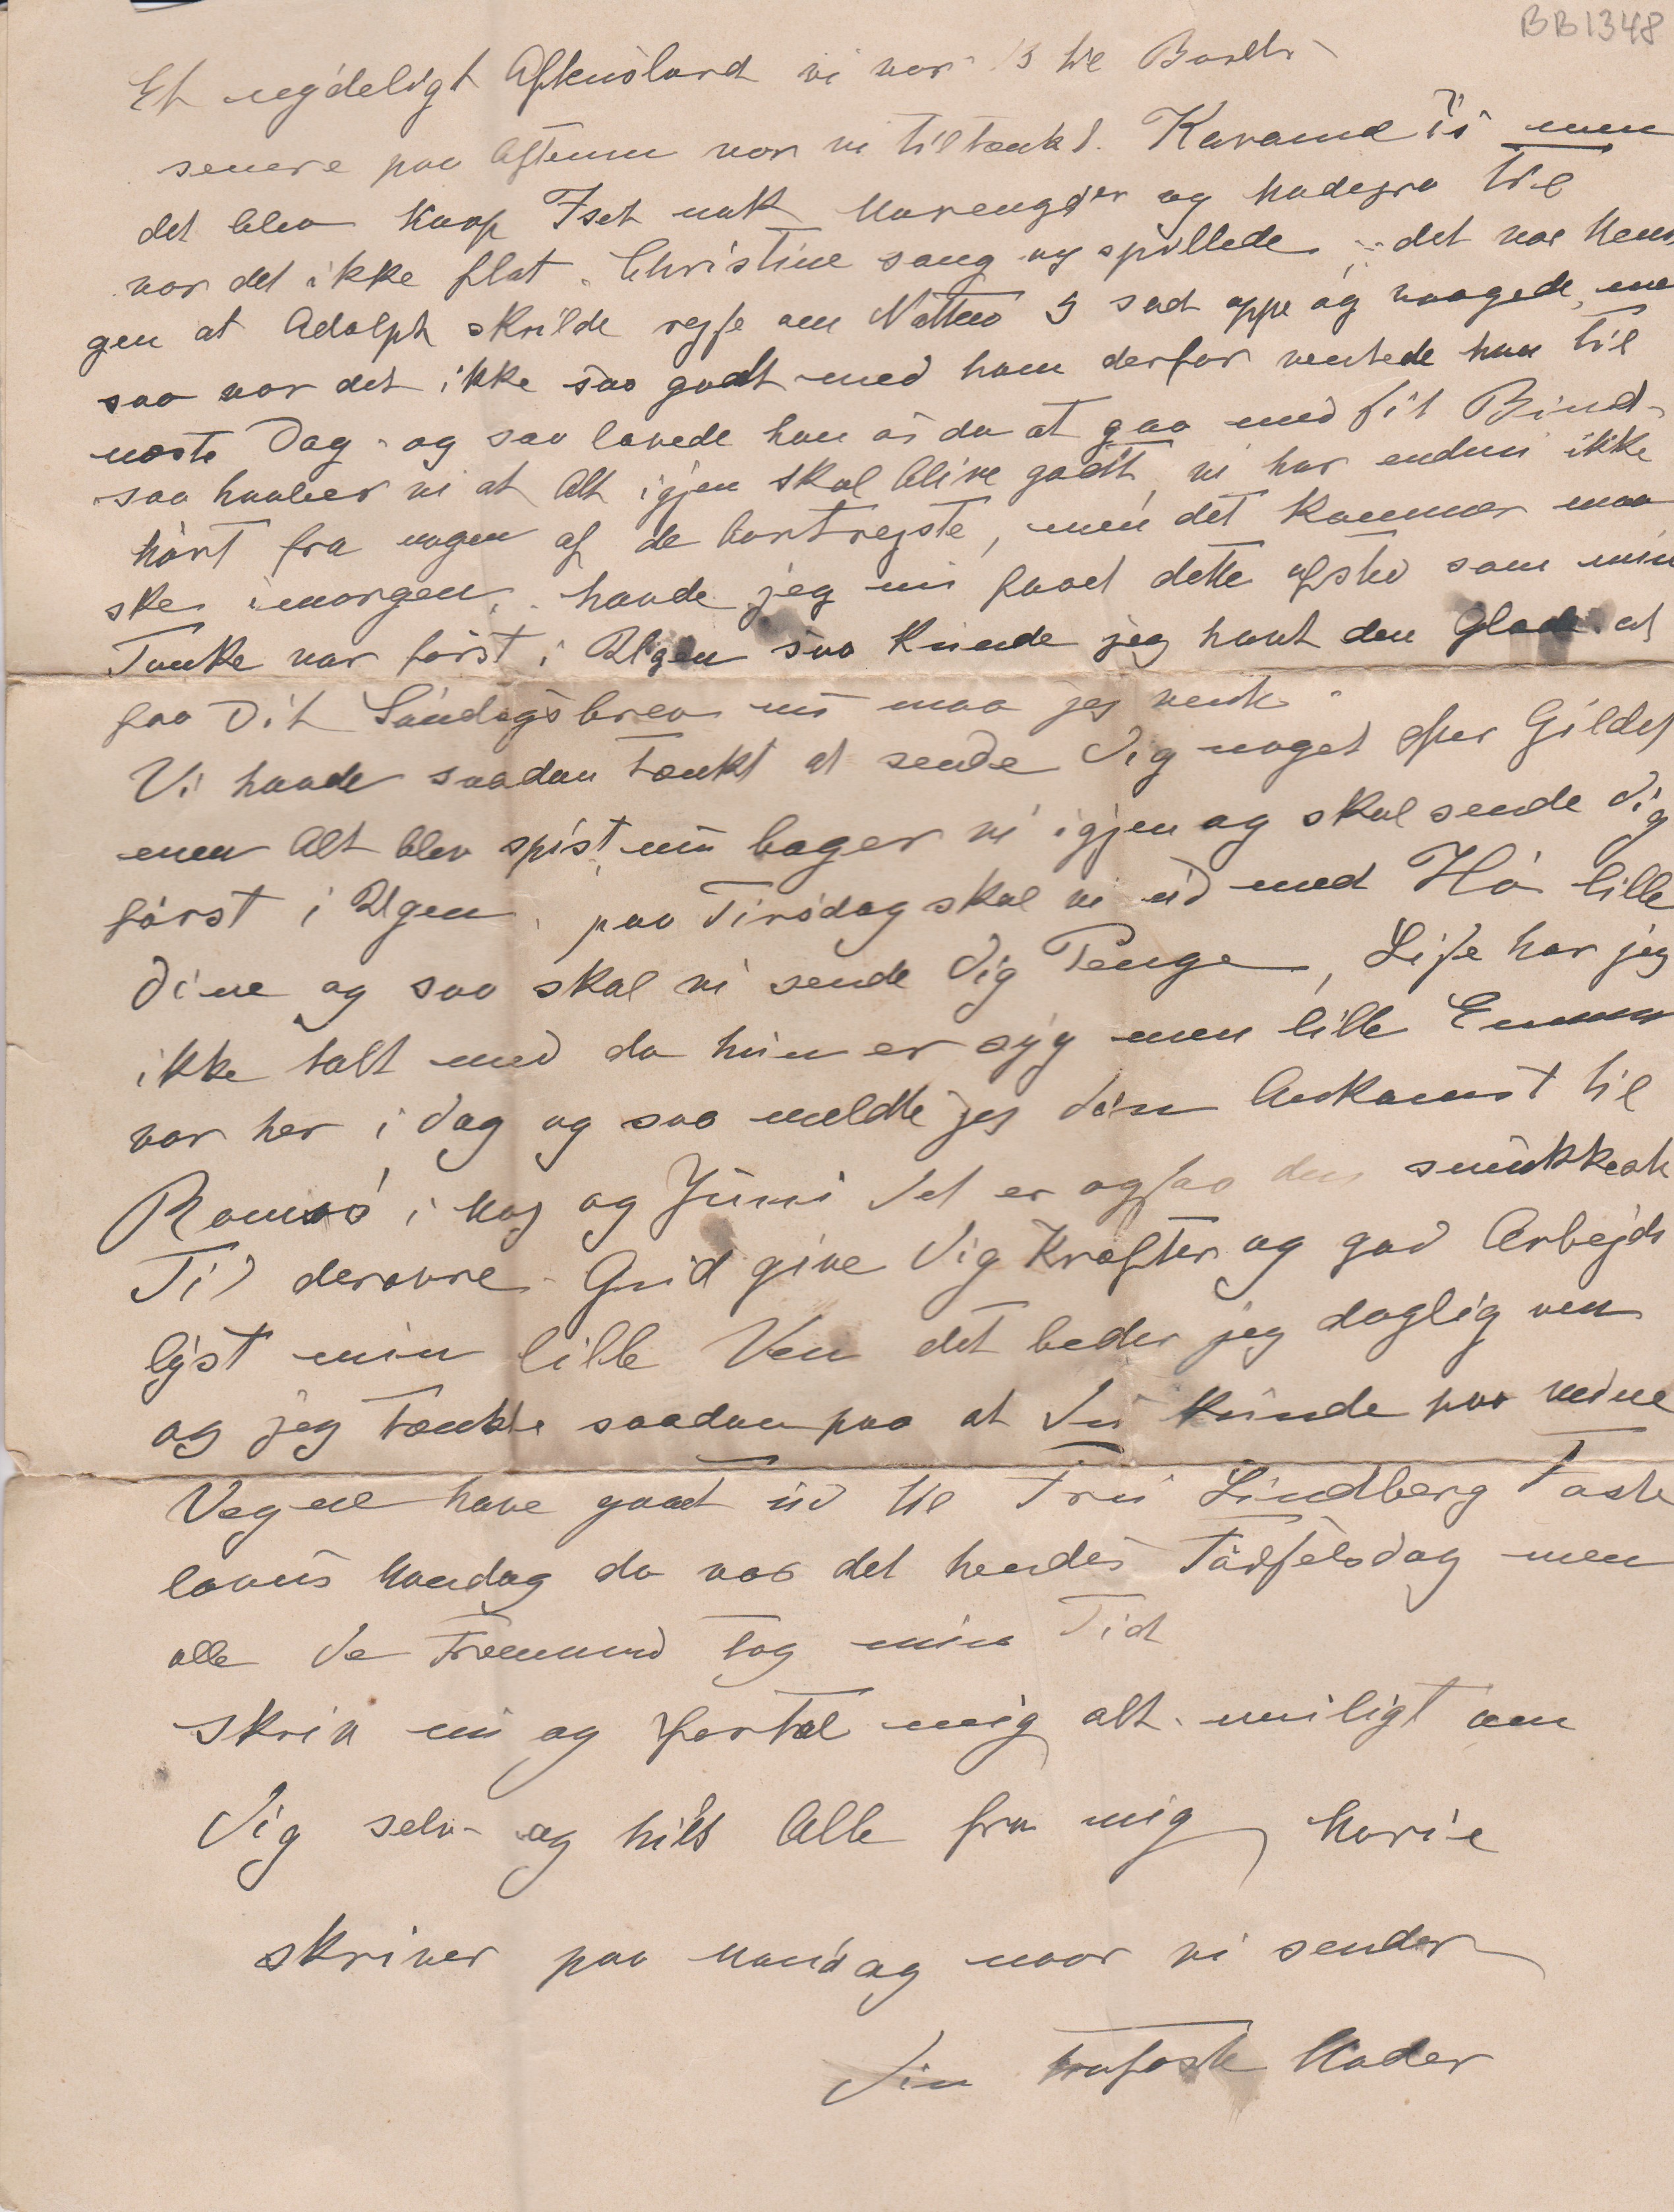 BB1348
Et nydeligt Aftensbord vi var 13 til Bords
senere paa Aftenen var vi tiltænkt Karamel is men
det blev Isel nok Marengjer og Madejra til
var det ikke flot. Christine sang og spillede, det var Menin
gen at Adolph skulde rejse om Natten 3 sad oppe og vaagede, men
saa var det ikke saa godt med ham derfor ventede han til
næste Dag og saa lovede han os da at gaa med sit Bind
saa haaber vi at Alt igjen skal blive godt, vi har endnu ikke
hørt fra nogen af de bortrejste, men det kommer maa
ske imorgen, havde jeg nu faaet dette afsted som min
Tanke var først i Ugen saa kunde jeg havt den Glæde at
faa Dit Søndagsbrev nu maa jeg vente
Vi havde saadan tænkt at sende Dig noget efter Gildet
men Alt blev spist, nu bager vi igjen og skal sende Dig
først i Ugen, paa Tirsdag skal vi ud med Hø lille
Dine og saa skal vi sende Dig Penge, Lise har jeg
ikke talt med da hun er syg men lille Emma
var her i Dag og saa meldte jeg Din Ankomst til
Romsø i Maj og Juni det er ogsaa den smukkeste
Tid derovre Gud give Dig Kræfter og god Arbejds
lyst min lille Ven det beder jeg daglig om
og jeg tænkte saadan paa at Du kunde paa mine
Vegne have gaaet ud til Fru Lindberg Faste
lavns Mandag da var det hendes Fødselsdag men
alle de Fremmed tog min Tid
Skriv nu og fortæl mig alt muligt om
Dig selv og hils Alle fra mig, Marie
skriver paa Mandag naar vi sender
Din trofaste Moder